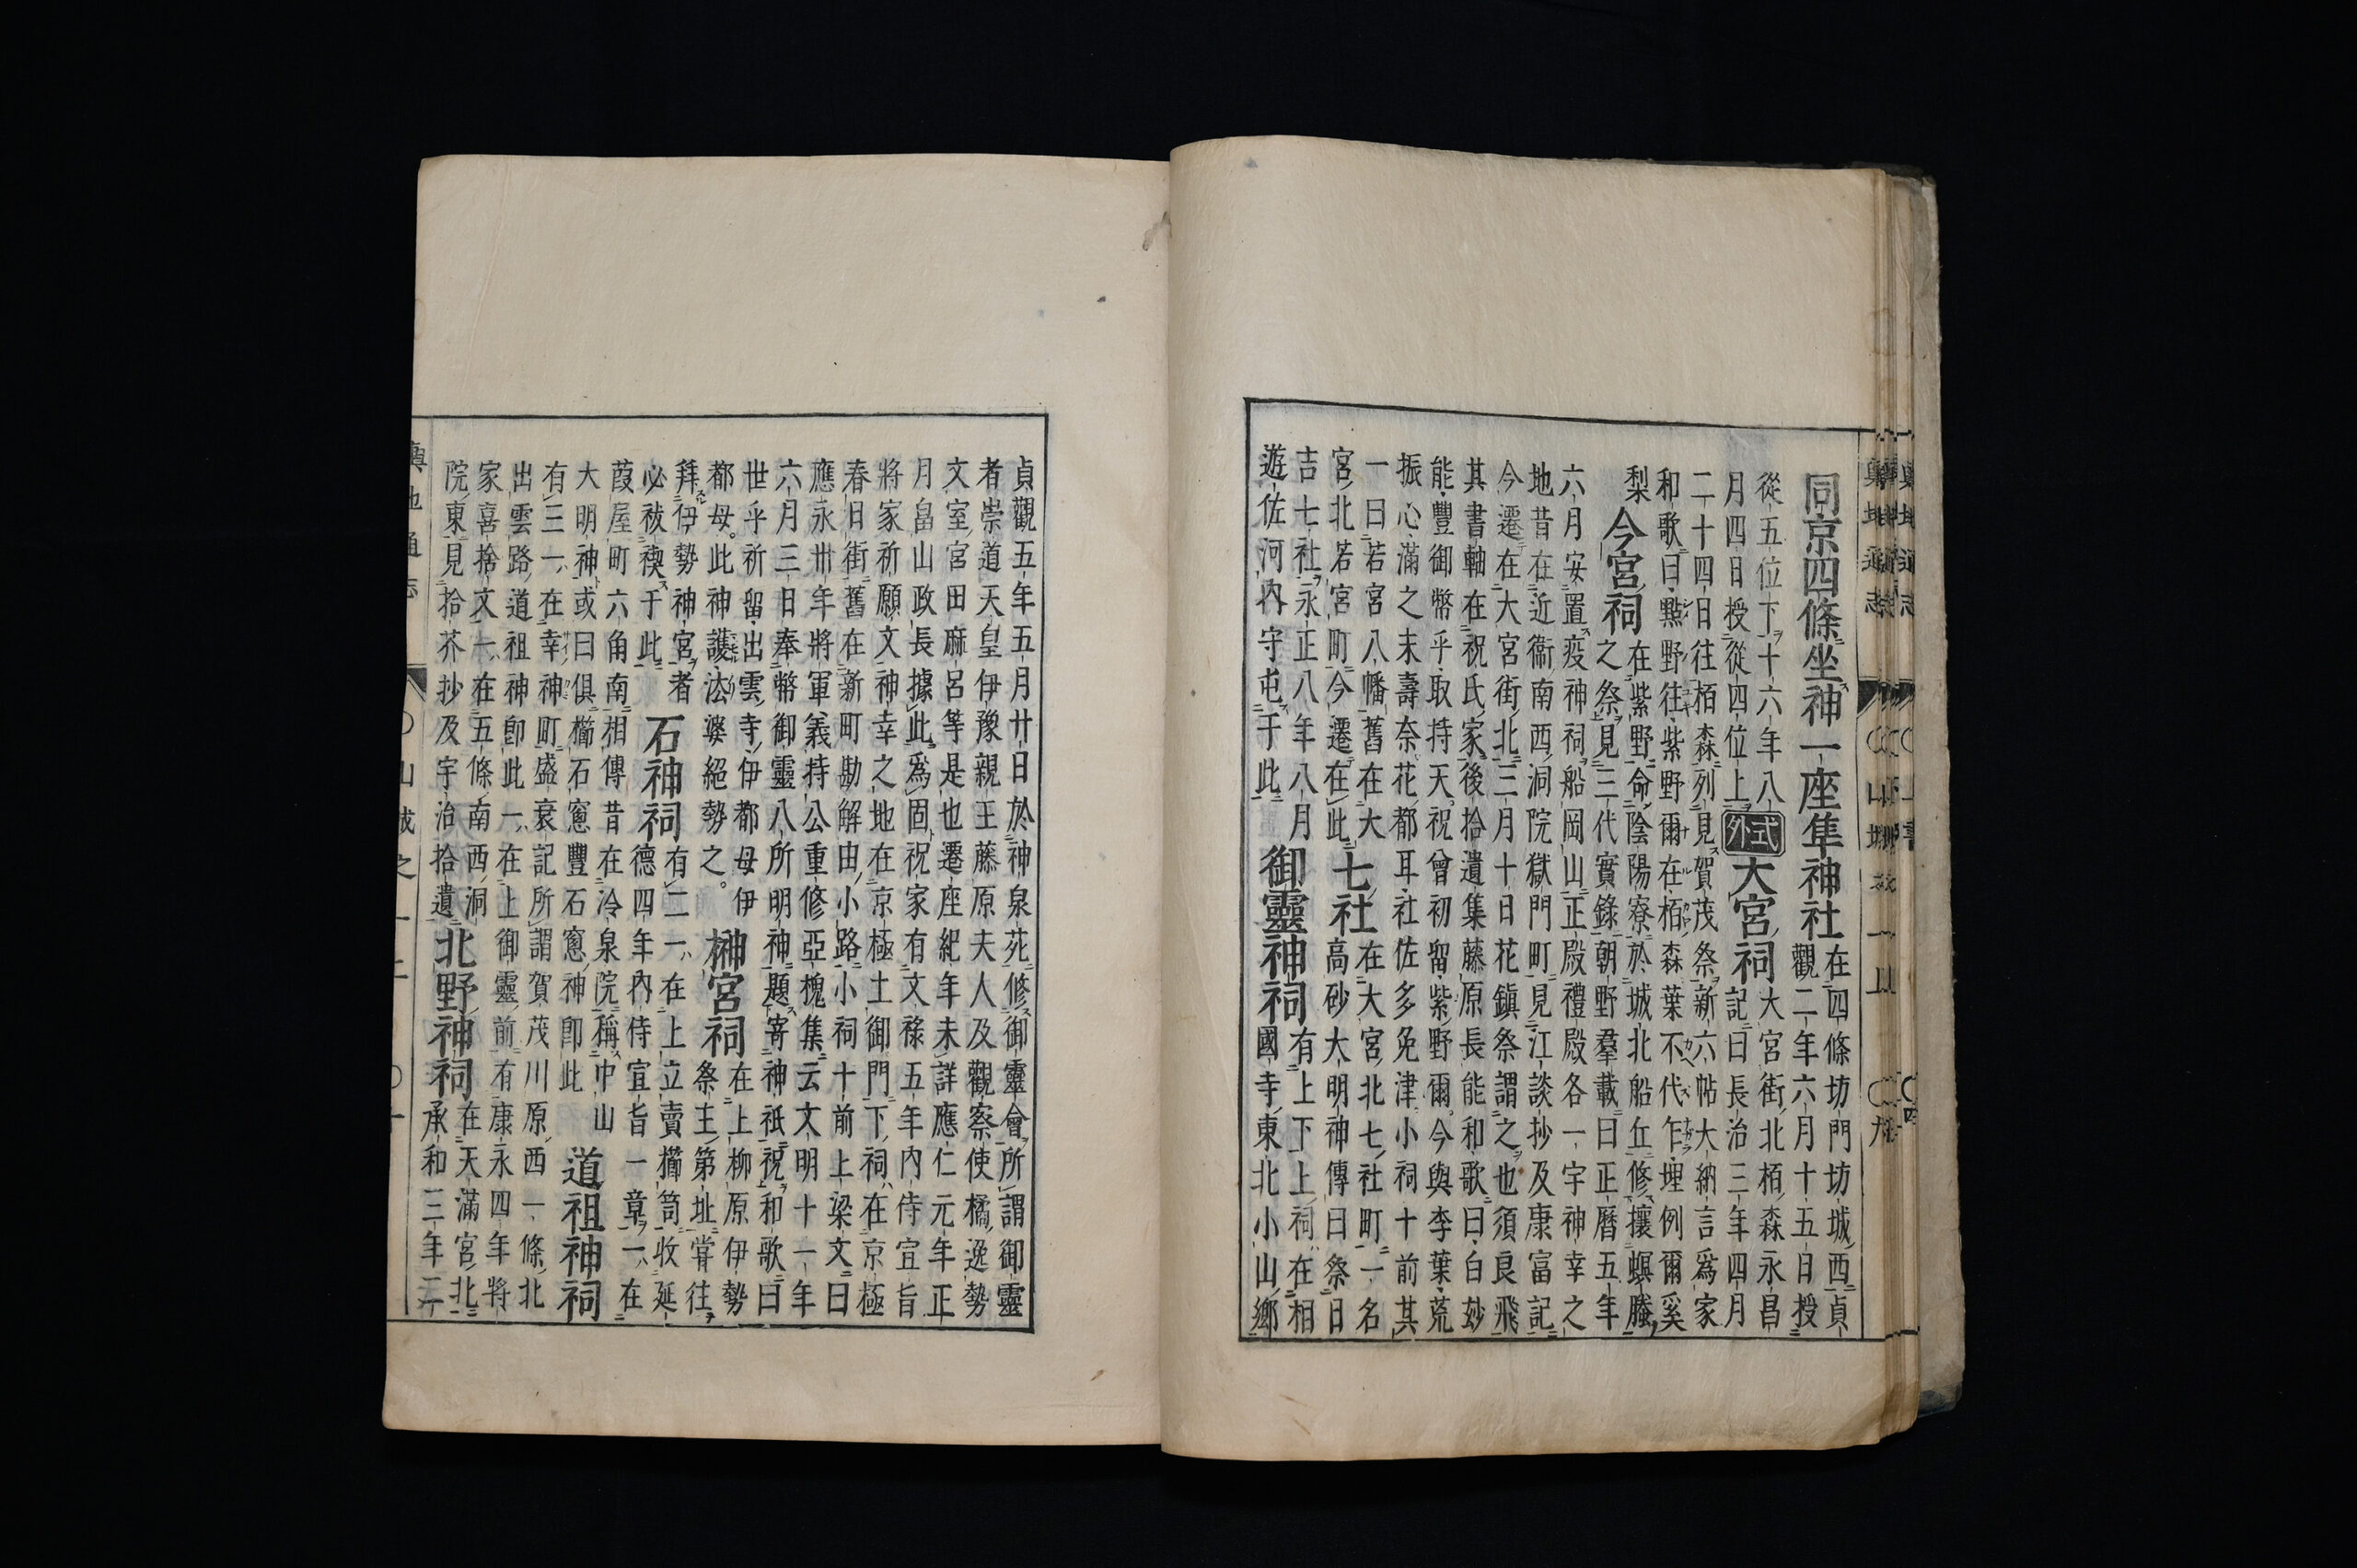 同京四條坐神一座隼神社
在四條坊門坊城西貞
觀二年六月十五日授
從五位下十六年八
月四日授從四位上
式外
大宮祠
大宮街北栢森永昌
記曰長治三年四月
二十四日往栢森列見賀茂祭新六帖大納言爲家
和歌曰點野往紫野爾在栢森葉不代乍埋例爾奚
梨
今宮祠
在紫野命陰陽寮於城北船丘修攘螟螣
之祭見三代實錄朝野羣載曰正曆五年
六月安置疫神祠船岡山正殿禮殿各一宇神幸之
地昔在近衞南西洞院獄門町見江談抄及康富記
今遷在大宮街北三月十日花鎮祭謂之也須良飛
其書軸在祝氏家後拾遺集藤原長能和歌曰白妙
能豐御幣乎取持天祝曾初留紫野爾今與李葉荒
振心滿之末壽奈花都耳社佐多免津小祠十前其
一曰若宮八幡舊在大
宮北若宮町今遷在此
七社
在大宮北七社町一名
高砂大明神傳曰祭日
吉七社永正八年八月
遊佐河內守屯于此
御靈神祠
有上下上祠在相
國寺東北小山鄉
貞觀五年五月廿日於神泉苑修御靈會所謂御靈
者崇道天皇伊豫親王藤原夫人及觀察使橘逸勢
文室宮田麻呂等是也遷座紀年未詳應仁元年正
月畠山政長據此爲固祝家有文祿五年內侍宣旨
將家祈願文神幸之地在京極土御門下祠在京極
春日街舊在新町勘解由小路小祠十前上梁文曰
應永卅年將軍義持公重修亞槐集云文明十一年
六月三日奉幣御靈八所明神題寄神祇祝和歌曰
世乎祈留出雲寺伊都母伊
都母。此神護法婆絕勢之。
榊宮祠
在上柳原伊勢
祭主第址嘗往
拜伊勢神宮者
必祓禊于此
石神祠
有二一在上立賣櫛笥收延
德四年內侍宣旨一章一在
葭屋町六角南相傳昔在冷泉院稱中山
大明神或曰俱櫛石窻豐石窻神卽此
道祖神祠
有三一在幸神町盛衰記所謂賀茂川原西一條北
出雲路道祖神卽此一在上御靈前有康永四年將
家喜捨文一在五條南西洞
院東見拾芥抄及宇治拾遺
北野神祠
在天滿宮北
承和三年二